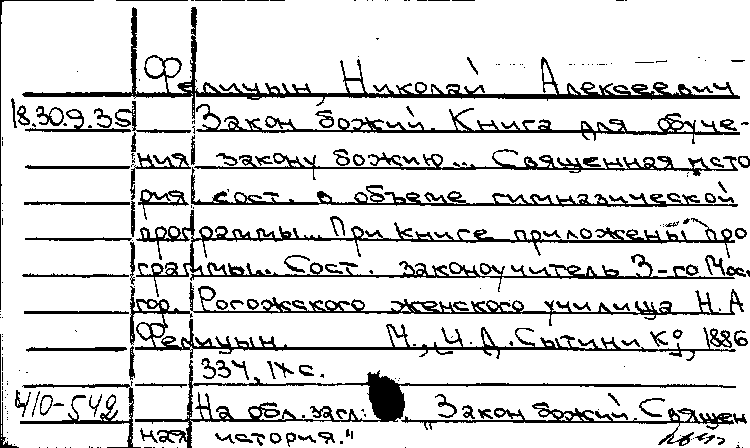 Фелицын, Николай Алексеевич
18.30.9.35 Закон божий. Книга для обуче-
ния закону божию... Священная исто
рия. сост. в объеме гимназической
программы... При книге приложены про
граммы... Сост. законоучитель 3-го Мос.
гор. Рогожского женского училища Н.А
Фелицын. М., И.Д. Сытин и Ко, 1886
334, IX с.
Ч10-542 На обл. загл.: "Закон божий. Священ
ная история."